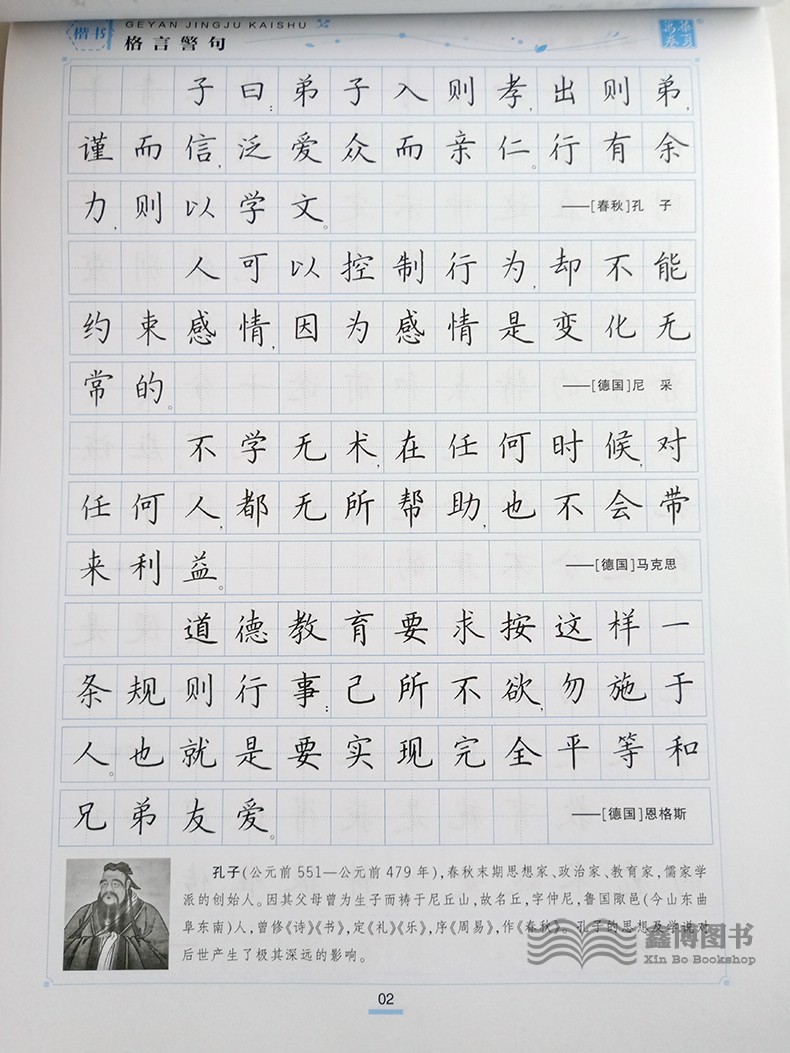 GEYAN JINGJU KAISHU
楷书
格言警句
子曰:弟子入则孝,出则弟,
谨而信,泛爱众而亲仁。行有余
力,则以学文。
——[春秋]孔 子
人可以控制行为,却不能
约束感情,因为感情是变化无
常的。
——[德国]尼 采
不学无术,在任何时候,对
任何人,都无所帮助,也不会带
来利益。
——[德国]马克思
道德教育要求按这样一
条规则行事:己所不欲,勿施于
人。也就是要实现完全平等和
兄弟友爱。
——[德国]恩格斯
孔子(公元前 551—公元前 479 年),春秋末期思想家、政治家、教育家,儒家学
派的创始人。因其父母曾为生子而祷于尼丘山,故名丘,字仲尼,鲁国陬邑(今山东曲
阜东南)人,曾修《诗》《书》,定《礼》《乐》,序《周易》,作《春秋》。孔子的思想及学说对
后世产生了极其深远的影响。
鑫博图书
Xin Bo Bookshop
02